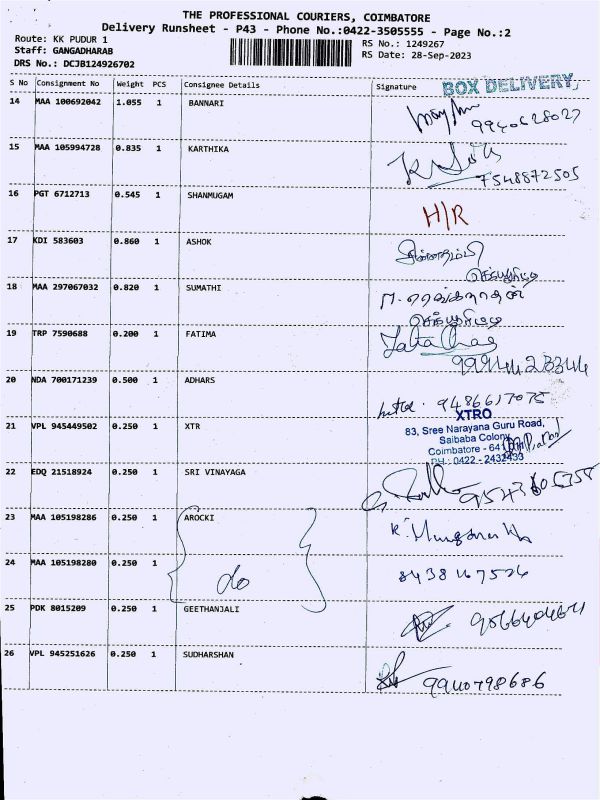 THE PROFESSIONAL COURIERS, COIMBATORE
Delivery Runsheet - P43 - Phone No.:0422-3505555 - Page No.:2
Route: KK PUDUR 1
Staff: GANGADHARAB
DRS No.: DCJB124926702
RS No.: 1249267
RS Date: 28-Sep-2023
S No Consignment No Weight PCS Consignee Details Signature
BOX DELIVERY
14 MAA 100692042 1.055 1 BANNARI
9940628027
15 MAA 105994728 0.835 1 KARTHIKA
7548872505
16 PGT 6712713 0.545 1 SHANMUGAM H/R
17 KDI 583603 0.860 1 ASHOK
18 MAA 297067032 0.820 1 SUMATHI
19 TRP 7590688 0.200 1 FATIMA
20 NDA 700171239 0.500 1 ADHARS
9486617075
21 VPL 945449502 0.250 1 XTR
XTRO
83, Sree Narayana Guru Road,
Saibaba Colony
Coimbatore - 641
PH : 0422 - 2432433
22 EDQ 21518924 0.250 1 SRI VINAYAGA
23 MAA 105198286 0.250 1 AROCKI
24 MAA 105198280 0.250 1 do
8438167526
25 PDK 8015209 0.250 1 GEETHANJALI
26 VPL 945251626 0.250 1 SUDHARSHAN
9940798686